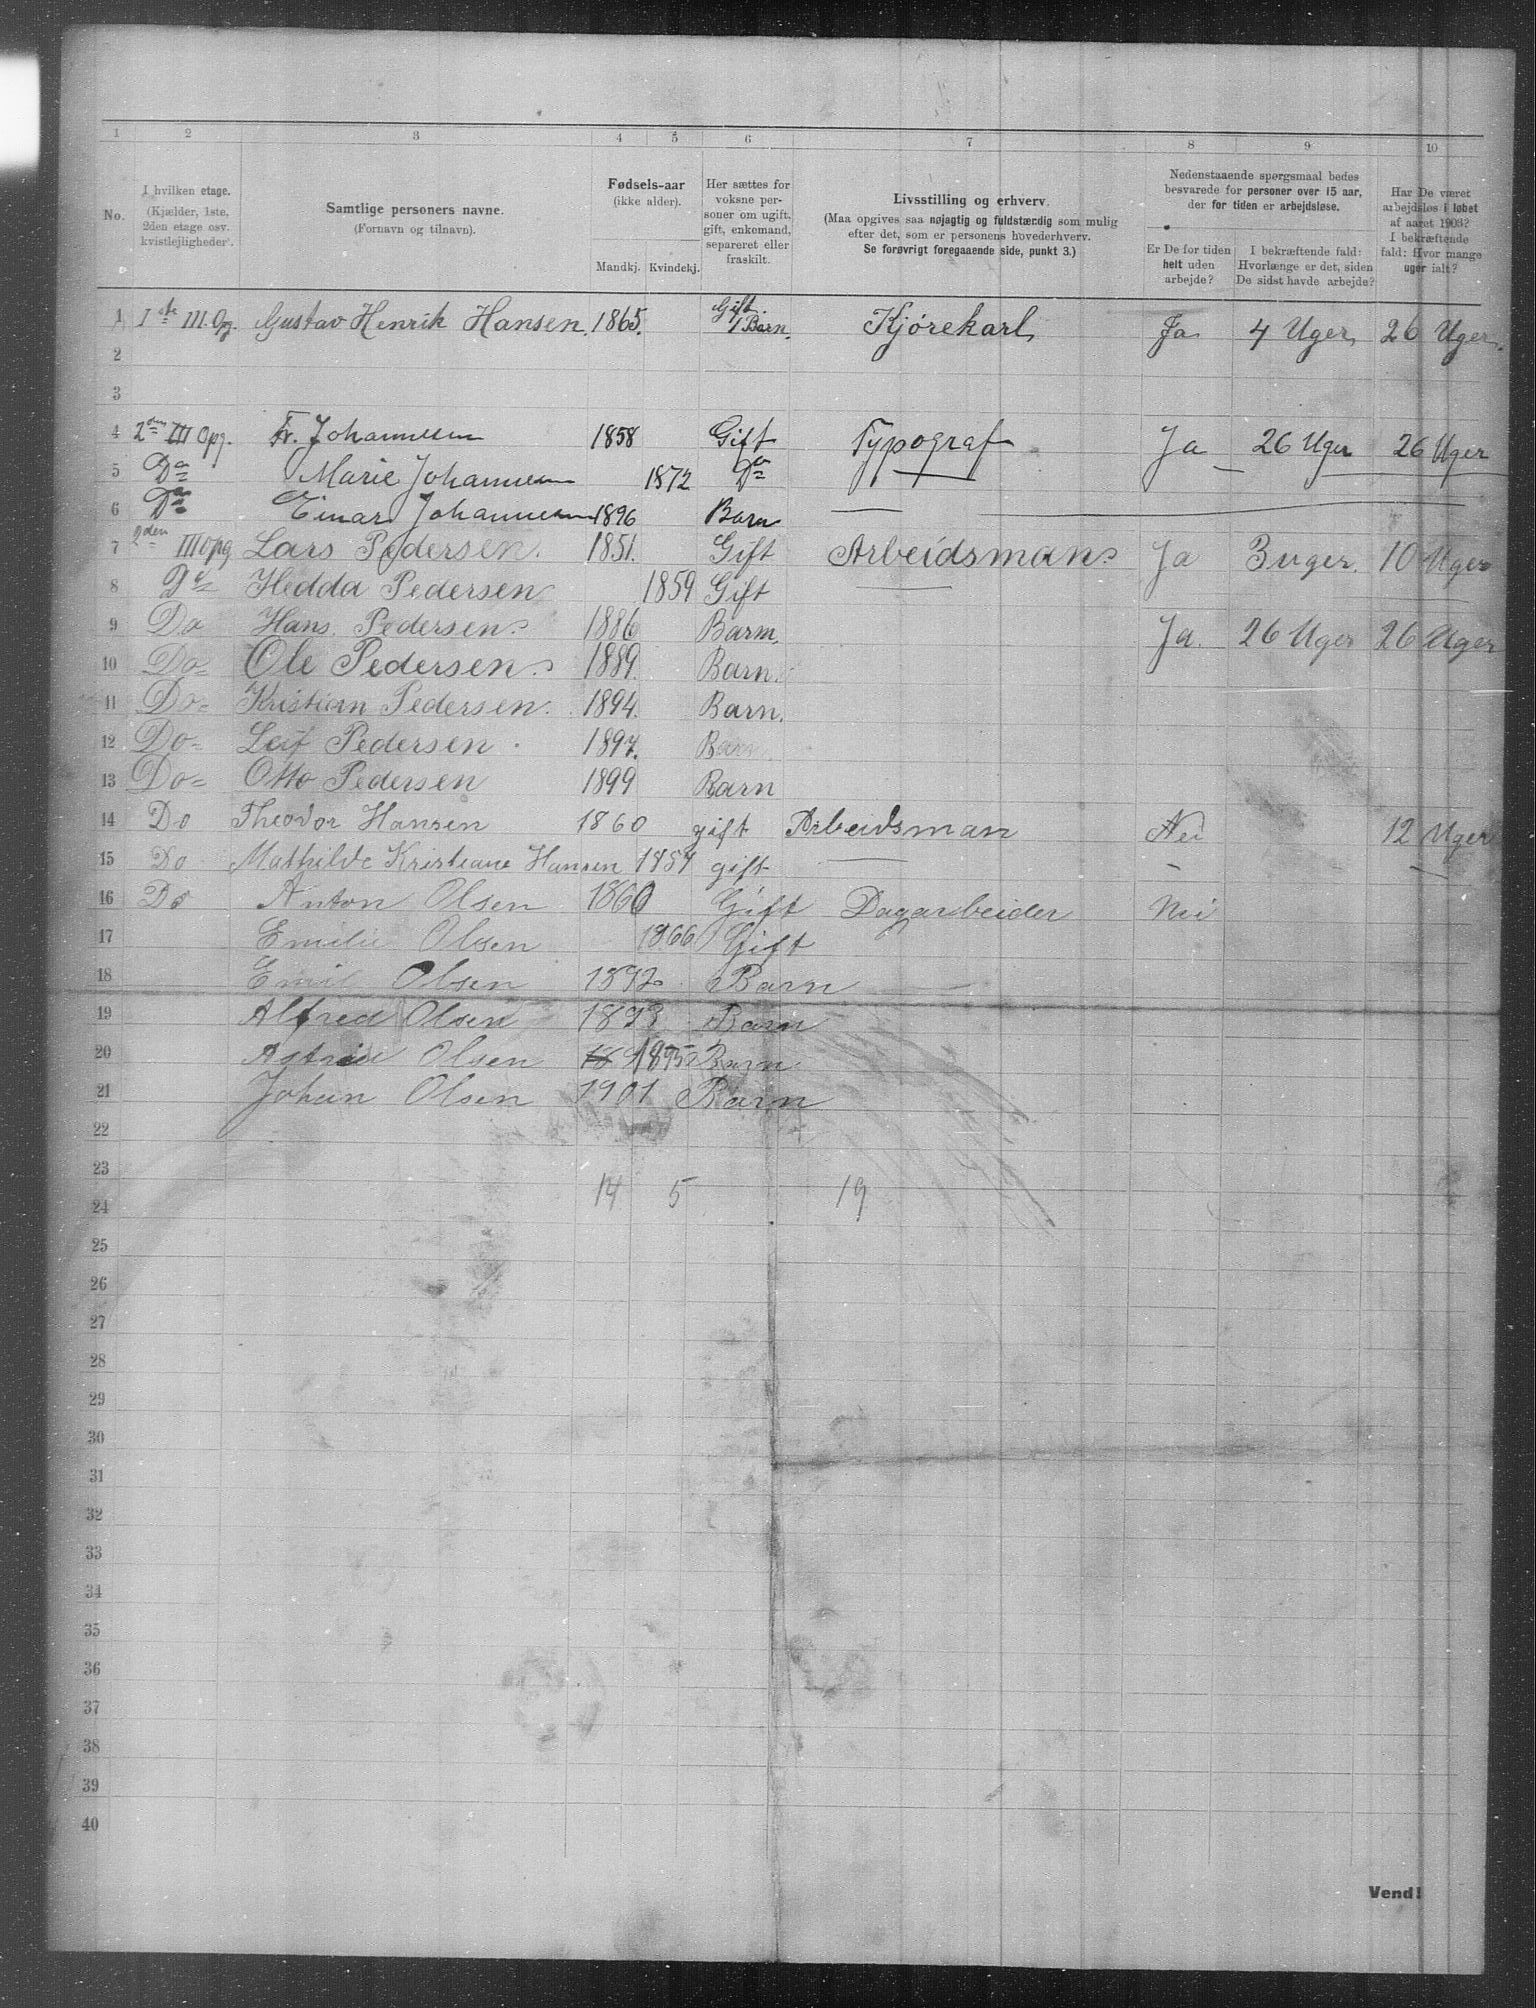 1 2 3 4 5 6 7 8 9 10
No.
I hvilken etage.
(Kjælder, 1ste,
2den etage osv.
kvistlejligheder).
Samtlige personers navne.
(Fornavn og tilnavn).
Fødsels-aar
(ikke alder).
Mandkj. Kvindekj.
Her sættes for
voksne per-
soner om ugift,
gift, enkemand,
separeret eller
fraskilt.
Livsstilling og erhverv.
(Maa opgives saa nøjagtig og fuldstændig som mulig
efter det, som er personens hovederhverv.
Se forøvrigt foregaaende side, punkt 3.)
Nedenstaaende spørgsmaal bedes
besvarede for personer over 15 aar,
der for tiden er arbejdsløse.
Er De for tiden
helt uden
arbejde?
I bekræftende fald:
Hvorlænge er det, siden
De sidst havde arbejde?
Har De været
arbejdsløs i løbet
af aaret 1903?
I bekræftende
fald: Hvor mange
uger ialt?
1 1ste III. Opg. Gustav Henrik Hansen. 1865. Gift. 1 Barn. Kjørekarl Ja 4 Uger 26 Uger.
2
3
4 2den III Opg. Fr. Johannesen 1858 Gift Typograf Ja 26 Uger 26 Uger
5 Do Marie Johannesen 1872 Do —
6 Do Einar Johannesen 1896 Barn —
7 2den III Opg Lars Pedersen. 1851. Gift Arbeidsman. Ja 3 uger. 10 Uger
8 Do Hedda Pedersen 1859 Gift —
9 Do Hans. Pedersen. 1886 Barn. Ja. 26 Uger 26 Uger
10 Do- Ole Pedersen. 1889. Barn.
11 Do- Kristian Pedersen. 1894. Barn.
12 Do- Leif Pedersen. 1897. Barn
13 Do- Otto Pedersen 1899 Barn
14 Do Theodor Hansen 1860 gift Arbeidsman Nei 12 Uger
15 Do Mathilde Kristiane Hansen 1857 gift — - -
16 Do Anton Olsen 1860 Gift Dagarbeider Nei
17 Emilie Olsen 1866 Gift
18 Emil Olsen 1892 Barn
19 Alfred Olsen 1893 Barn
20 Astrid Olsen 1895 Barn
21 Johan Olsen 1901 Barn
22
23
14 5 19
24
25
26
27
28
29
30
31
32
33
34
35
36
37
38
39
40
Vend!